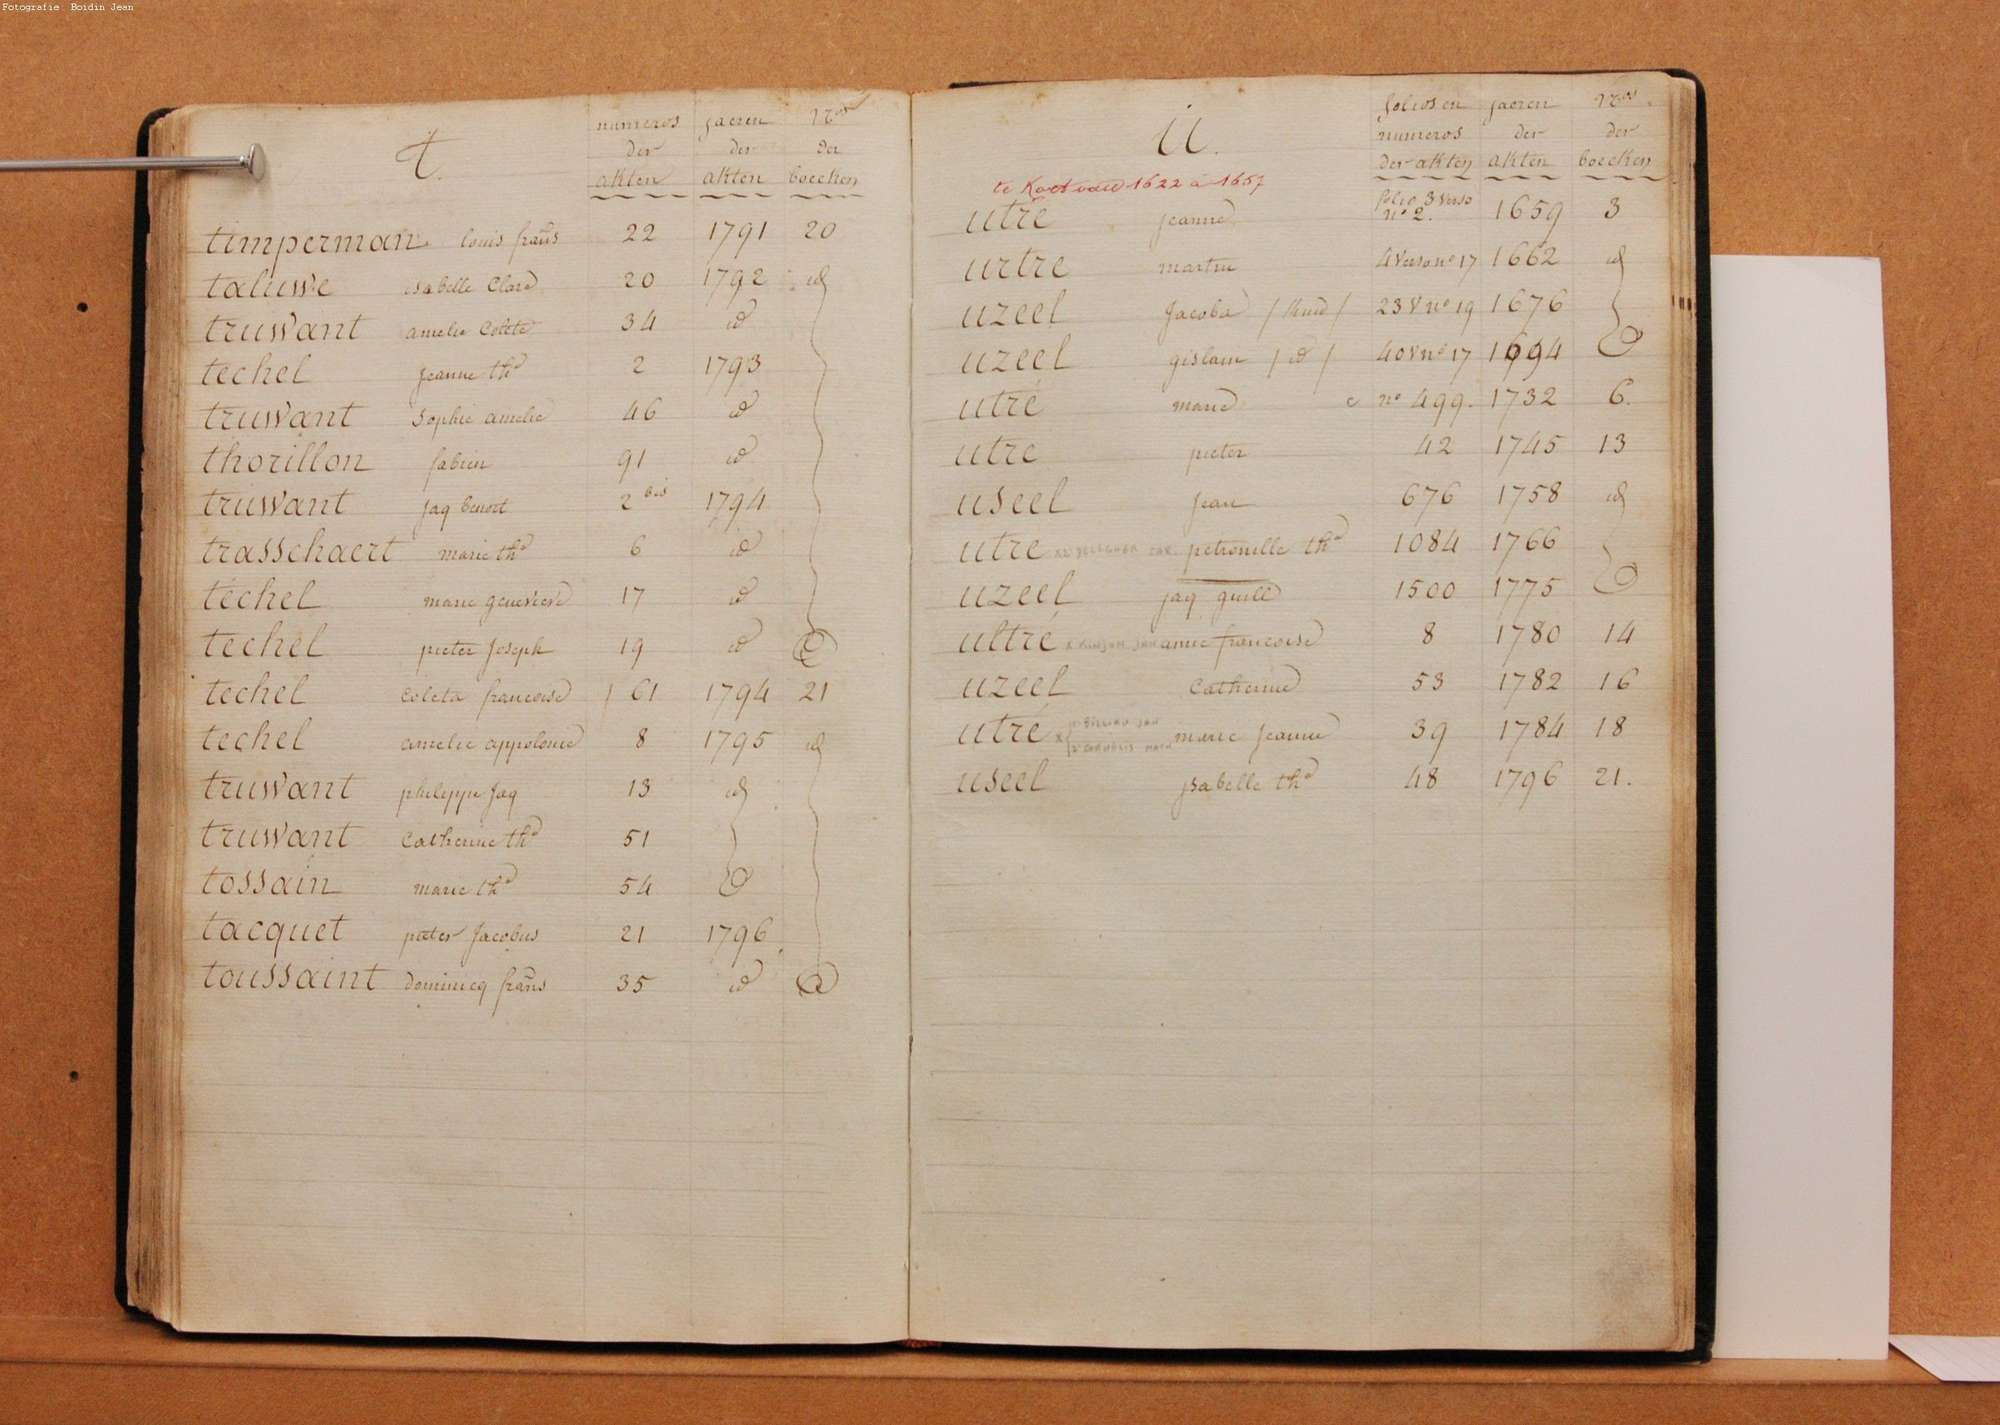 Fotografie Boidin Jean
t.
numeros der akten
jaeren der akten
nos der boecken
timperman louis frans 22 1791 20
taluwe isabelle Clare 20 1792 id
truwant amelie Colete 34 id
techel jeanne the 2 1793
truwant Sophie amelie 46 id
thorillon fabien 91 id
truwant jaq benoit 2 bis 1794
trasschaert marie the 6 id
techel marie genevieve 17 id
techel pieter joseph 19 id
techel Coleta francoise 61 1794 21
techel amelie appolonie 8 1795 id
truwant philippe jaq 13 id
truwant Catherine the 51
tossain marie the 54
tacquet pieter jacobus 21 1796
toussaint dominicq frans 35 id
u.
folios en numeros der akten
jaeren der akten
nos der boecken
te 1622 à 1657
utre jeanne folio 3 verso no 2. 1659 3
urtre martin 4 verso no 17 1662 id
uzeel jacoba / kind / 23 v no 19 1676
uzeel gislain / id / 40 v no 17 1694
utré marie no 499. 1732 6.
utre pieter 42 1745 13
useel jean 676 1758 id
utre petronille the 1084 1766
uzeel jaq guill 1500 1775
ultré anne francoise 8 1780 14
uzeel Catherine 53 1782 16
utré marie jeanne 39 1784 18
useel ysabelle the 48 1796 21.